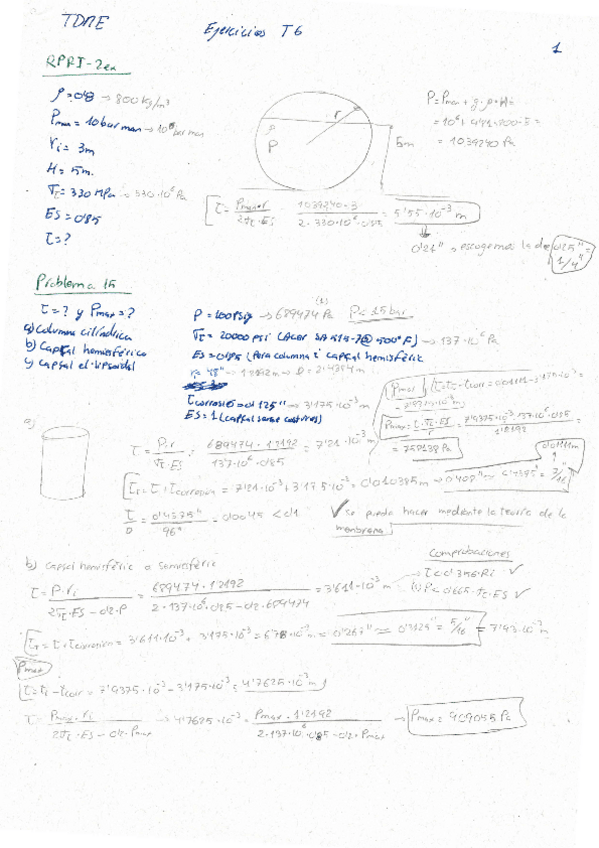 TDME
Ejercicios T6
1
RPRI-2ex
ρ=0'8 → 800 kg/m³
Pman = 10 bar man → 10⁶ bar man
ri = 3m
H = 5m.
σt = 330 MPa → 330·10⁶ Pa
ES = 0'85
t = ?
P
r
5m
P = Pman + g·ρ·H =
= 10⁶ + 9'81·800·5 =
= 1039240 Pa
t = Pman·r / 2σt·ES = 1039240·3 / 2·330·10⁶·0'85 = 5'55·10⁻³ m
0'21" → escogemos la de 0'25" = 1/4"
Problema 15
t = ? y Pmax = ?
a) Columna cilíndrica
b) Capsal hemisférico
c) Capsal elipsoidal
P = 100 psig → 689474 Pa P < 15 bar
σt = 20000 psi (Acer SA 515-70 @ 500°F) → 137·10⁶ Pa
ES = 0'85 (Para columna i capsal hemisféric
r = 48" → 1'2192 m → D = 2'4384 m
tcorrosió = 0'125" → 3'175·10⁻³ m
ES = 1 (capsal sense costures)
a)
t = P·r / σt·ES = 689474·1'2192 / 137·10⁶·0'85 = 7'21·10⁻³ m
= 758138 Pa
tt = t + tcorrosion = 7'21·10⁻³ + 3'175·10⁻³ = 0'010385 m → 0'408" → 0'4375" = 7/16"
0'0111 m
t/D = 0'4375" / 96" = 0'0045 < 0'1
✓ Se puede hacer mediante la teoría de la
membrana
b) capsal hemisféric o semiesféric
Comprobaciones
t = P·ri / 2σt·ES - 0'2·P = 689474·1'2192 / 2·137·10⁶·0'85 - 0'2·689474 = 3'611·10⁻³ m
→ t < 0'356·Ri ✓
P < 0'665·σt·ES ✓
tt = t + tcorrosion = 3'611·10⁻³ + 3'175·10⁻³ = 6'78·10⁻³ m = 0'267" ≈ 0'3125" = 5/16" = 7'93·10⁻³ m
Pmax
t = tt - tcorr = 7'9375·10⁻³ - 3'175·10⁻³ = 4'7625·10⁻³ m
t = Pmax·ri / 2σt·ES - 0'2·Pmax → 4'7625·10⁻³ = Pmax·1'2192 / 2·137·10⁶·0'85 - 0'2·Pmax → Pmax = 909055 Pa